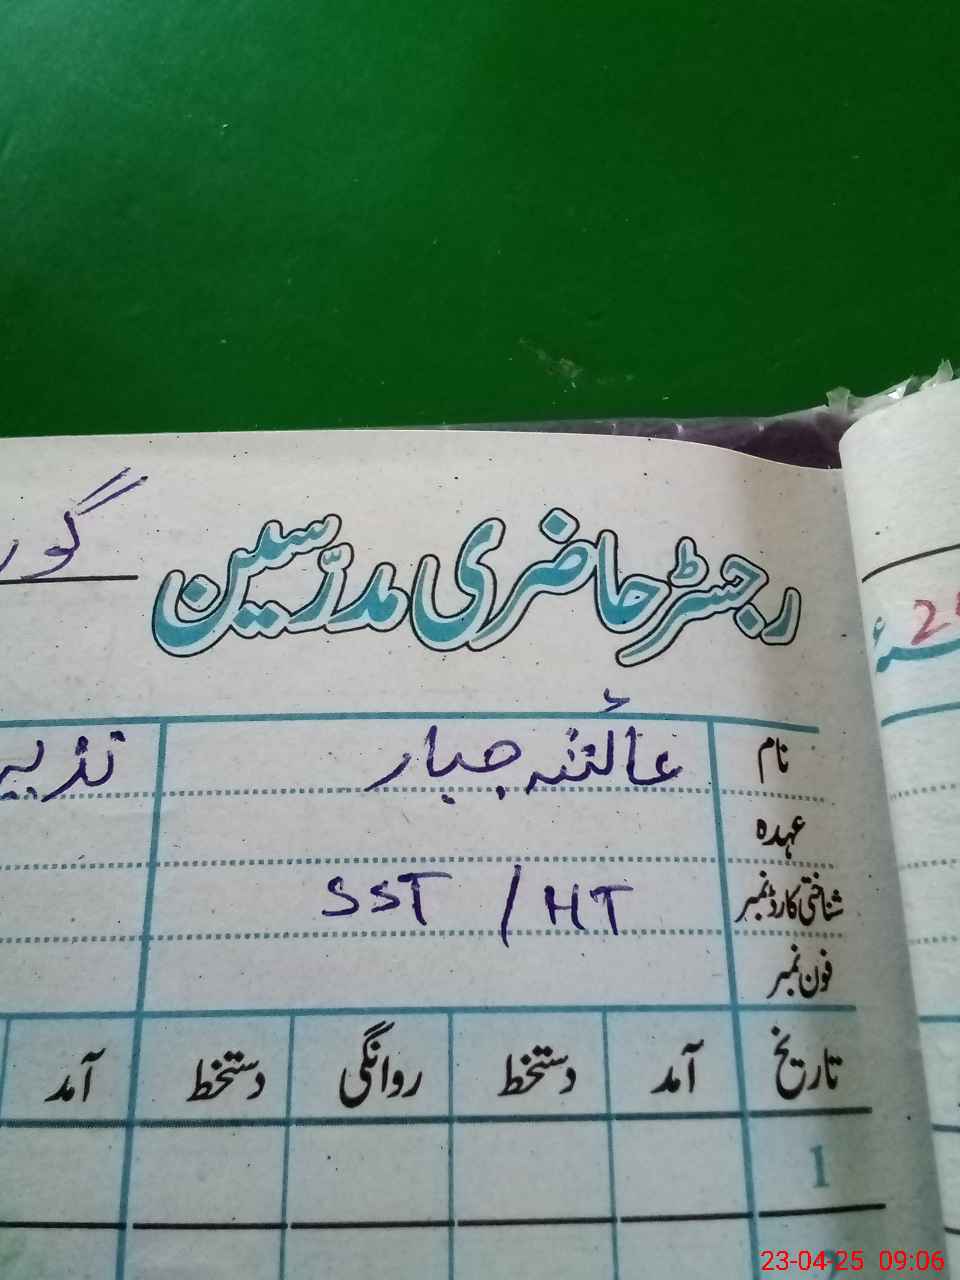 رجسٹر حاضری مدرّسین
گور
نام عائشہ جبار
عہدہ
شناختی کارڈ نمبر SST / HT
فون نمبر
تاریخ آمد دستخط روانگی دستخط آمد
1
23-04-25 09:06